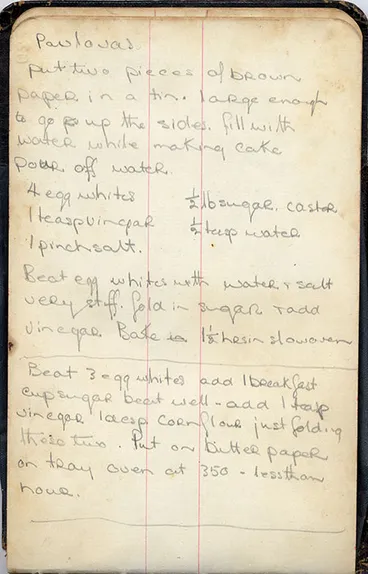 Pavlovas.
put two pieces of brown
paper in a tin. large enough
to go up the sides. fill with
water while making cake
pour off water.
4 egg whites ½ lb sugar. castor
1 teasp vinegar ½ teasp water
1 pinch salt.
Beat egg whites with water & salt
very stiff. fold in sugar & add
vinegar Bake 1½ hrs in slow oven
Beat 3 egg whites add 1 breakfast
cup sugar beat well - add 1 teasp
vinegar 1 dessp cornflour just folding
these two. Put on butter paper
on tray oven at 350 - less than
hour.